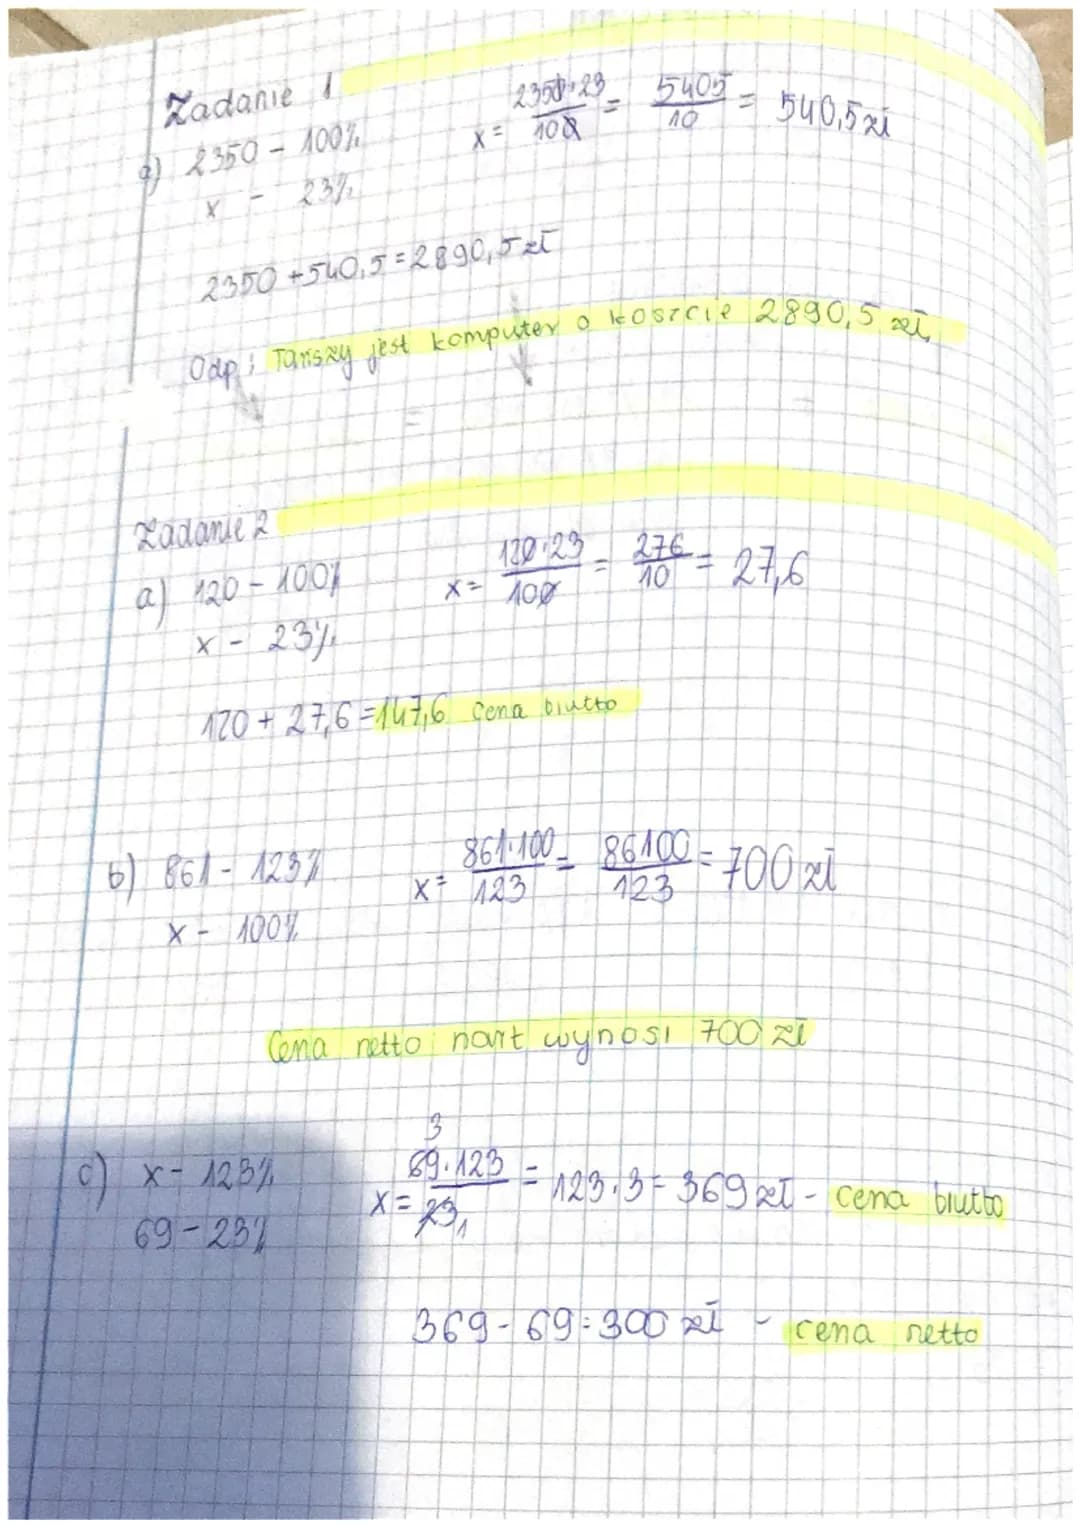 Zadanie 1
a) 2350 - 100%
x - 23%
x = 2350·23/100 = 5405/10 = 540,5 zł
2350 + 540,5 = 2890,5 zł
Odp: Tańszy jest komputer o koszcie 2890,5 zł,
Zadanie 2
a) 120 - 100%
x - 23%
x = 120·23/100 = 276/10 = 27,6
120 + 27,6 = 147,6 cena brutto
b) 861 - 123%
x - 100%
x = 861·100/123 = 86100/123 = 700 zł
Cena netto nart wynosi 700 zł
c) x - 123%
69 - 23%
3
x = 69·123/23 1 = 123·3 = 369 zł - cena brutto
369 - 69 = 300 zł - cena netto